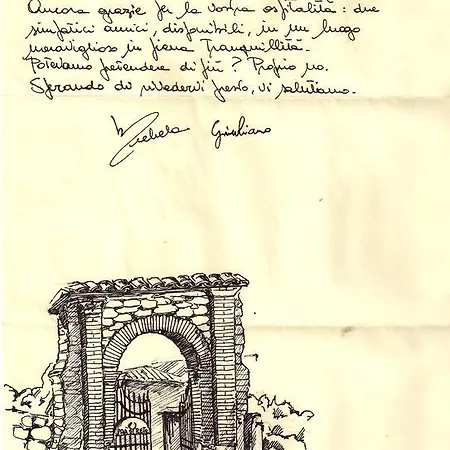 Ancora grazie per la vostra ospitalità: due
simpatici amici, disponibili, in un luogo
meraviglioso in piena Tranquillità.
Potevamo pretendere di più? Proprio no.
Sperando di rivedervi presto, vi salutiamo.
Michela Giuliano